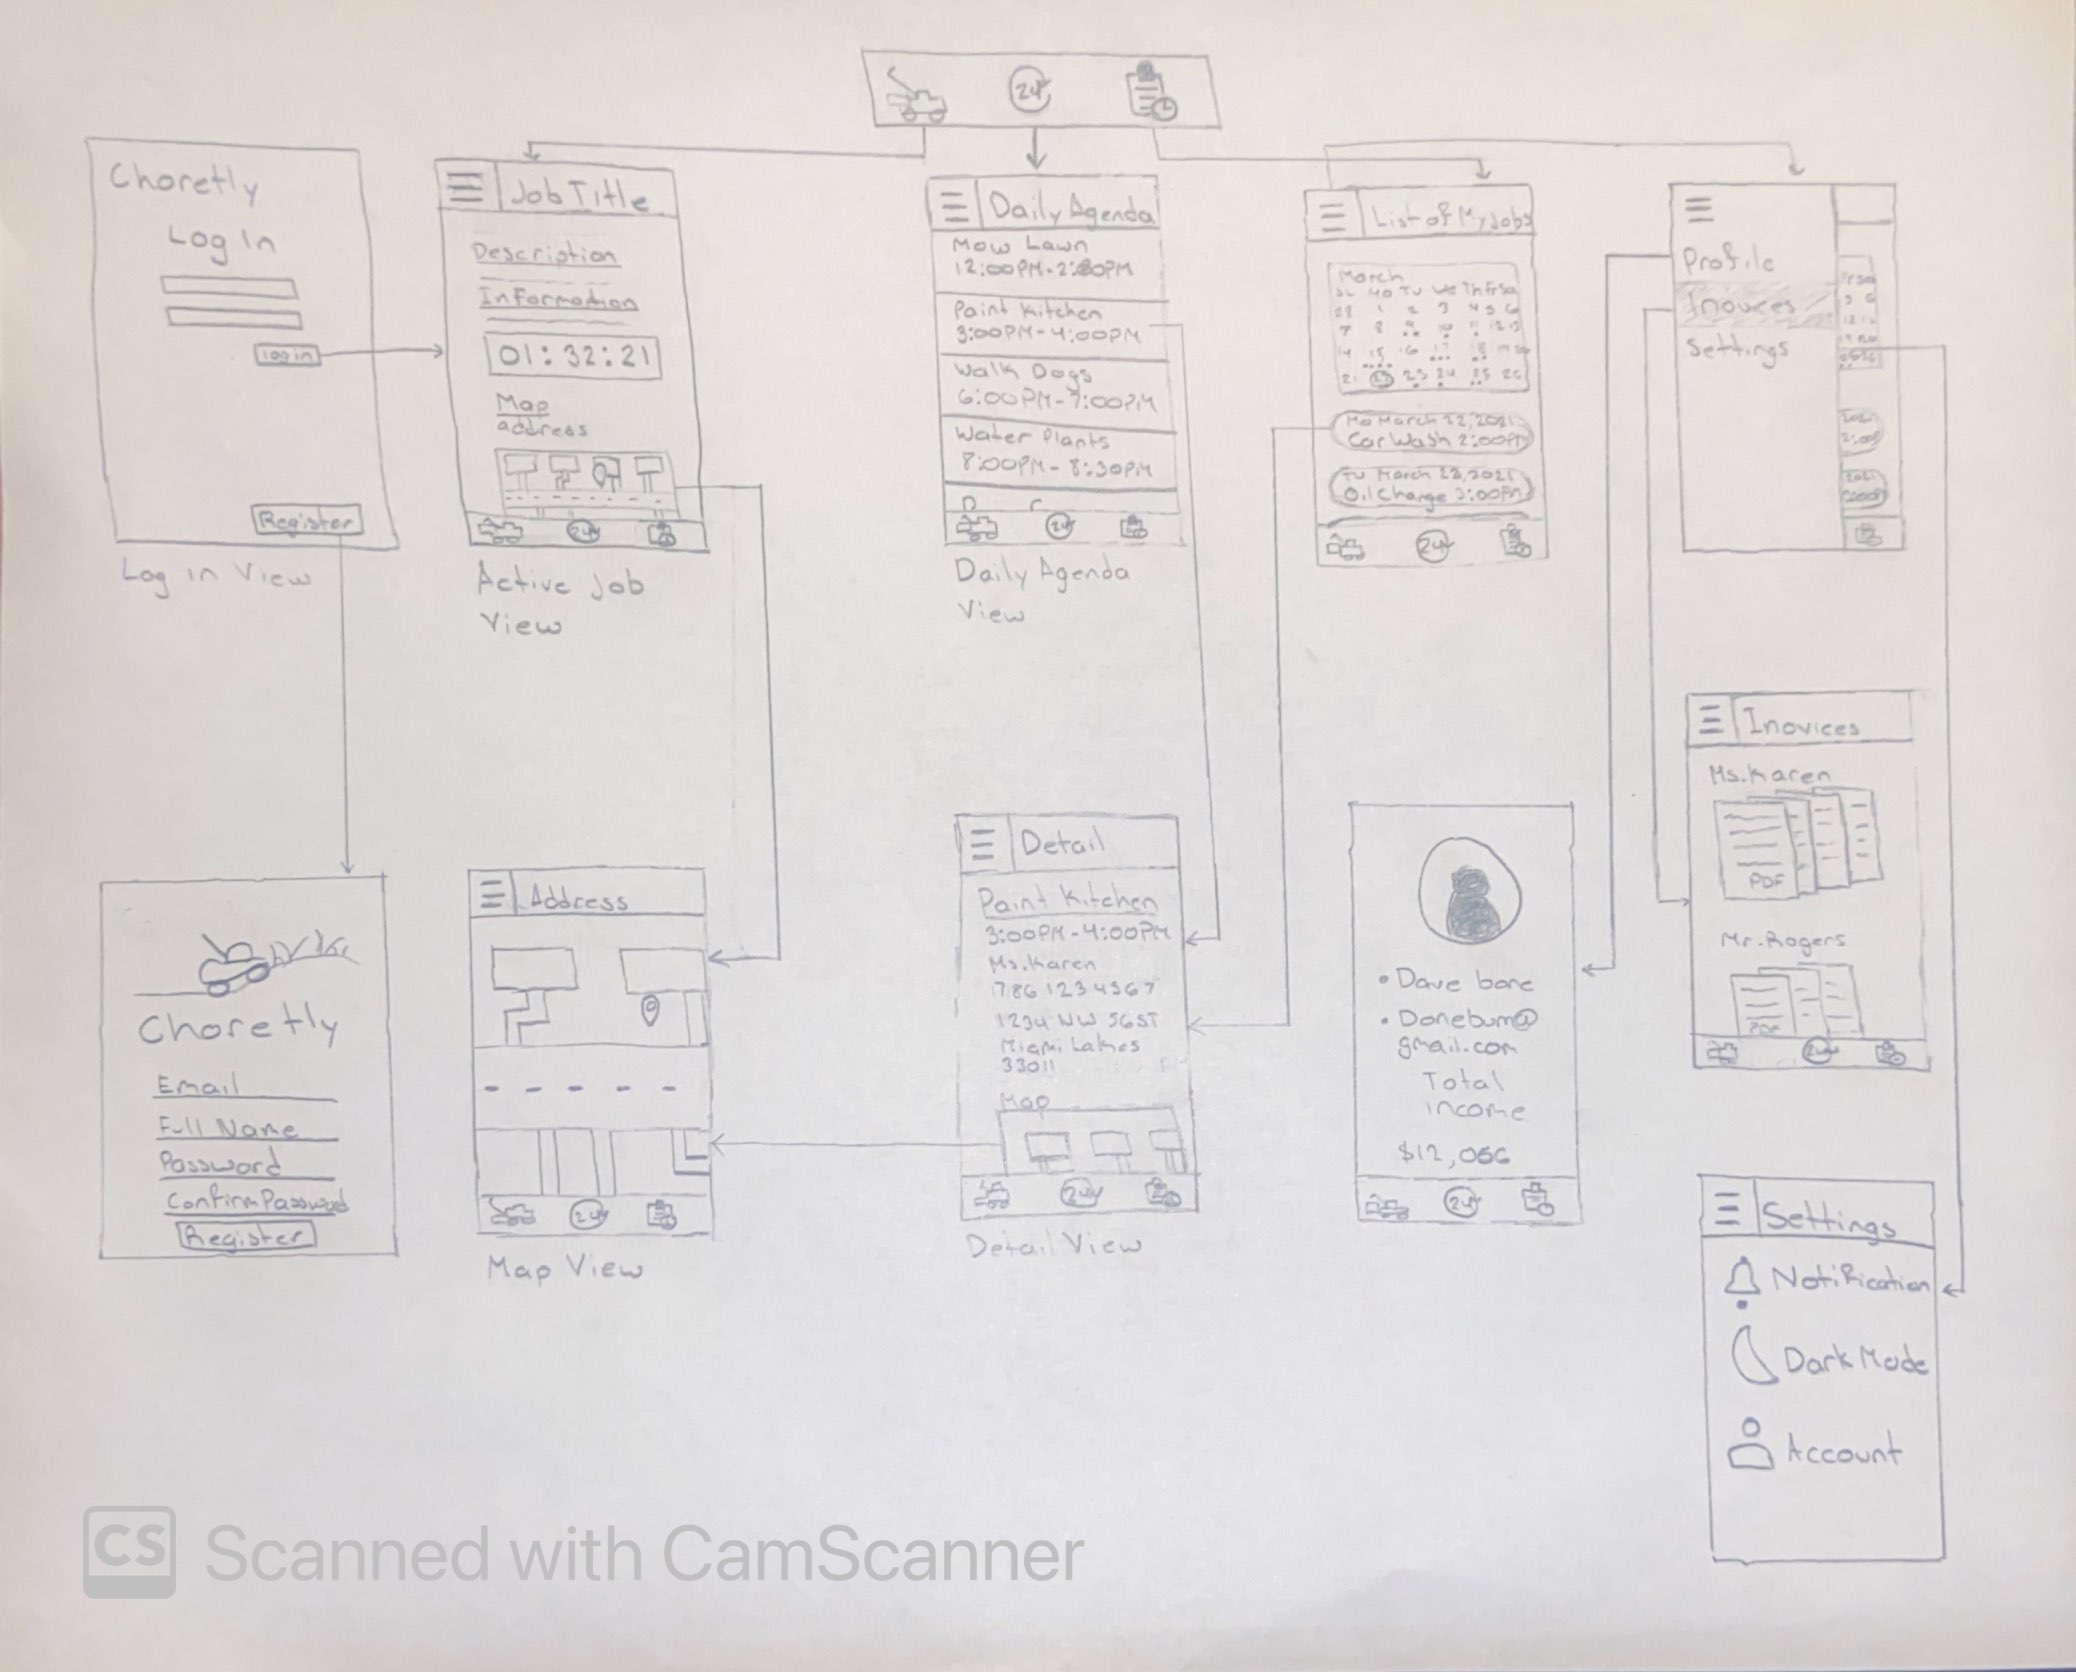 24
Choretly
Log In
login
Register
Log in View
Job Title
Description
Information
01:32:21
Map
address
24
Active Job
View
Daily Agenda
Mow Lawn
12:00PM-2:00PM
Paint Kitchen
3:00PM-4:00PM
Walk Dogs
6:00PM-7:00PM
Water Plants
8:00PM-8:30PM
24
Daily Agenda
View
List of My Jobs
March
Mo March 22,2021
Car Wash 2:00PM
Tu March 23,2021
Oil Change 3:00PM
24
Profile
Inovices
Settings
2021
2:00P
2021
Choretly
Email
Full Name
Password
Confirm Password
Register
Address
24
Map View
Detail
Paint Kitchen
3:00PM-4:00PM
Ms.Karen
786 1234567
1234 NW 56ST
Miami Lakes
33011
Map
24
Detail View
• Dave bone
• Donebum@
gmail.com
Total
income
$12,056
24
Inovices
Ms.Karen
PDF
Mr.Rogers
PDF
24
Settings
Notification
Dark Mode
Account
CS Scanned with CamScanner